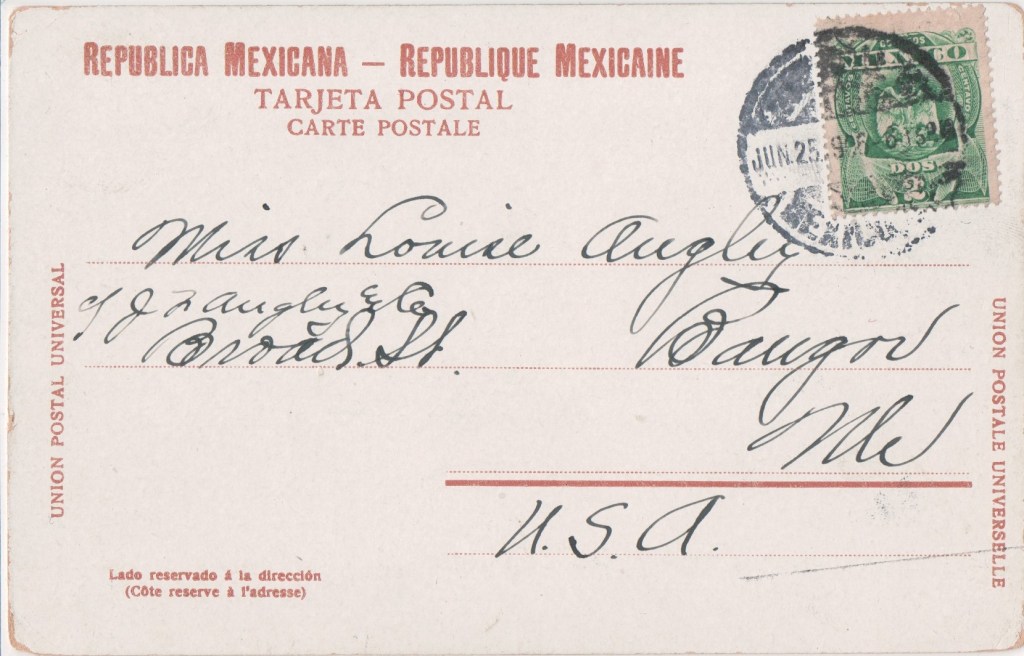 REPUBLICA MEXICANA — REPUBLIQUE MEXICAINE
TARJETA POSTAL
CARTE POSTALE
CORREOS
MEXICO
CENTAVOS
CENTAVOS
DOS
2
JUN. 25
Miss Louise Angley
c/ J Z Angley & Co
Broad St. Bangor
Me
U.S.A.
UNION POSTAL UNIVERSAL
UNION POSTALE UNIVERSELLE
Lado reservado á la dirección
(Côte reserve à l'adresse)